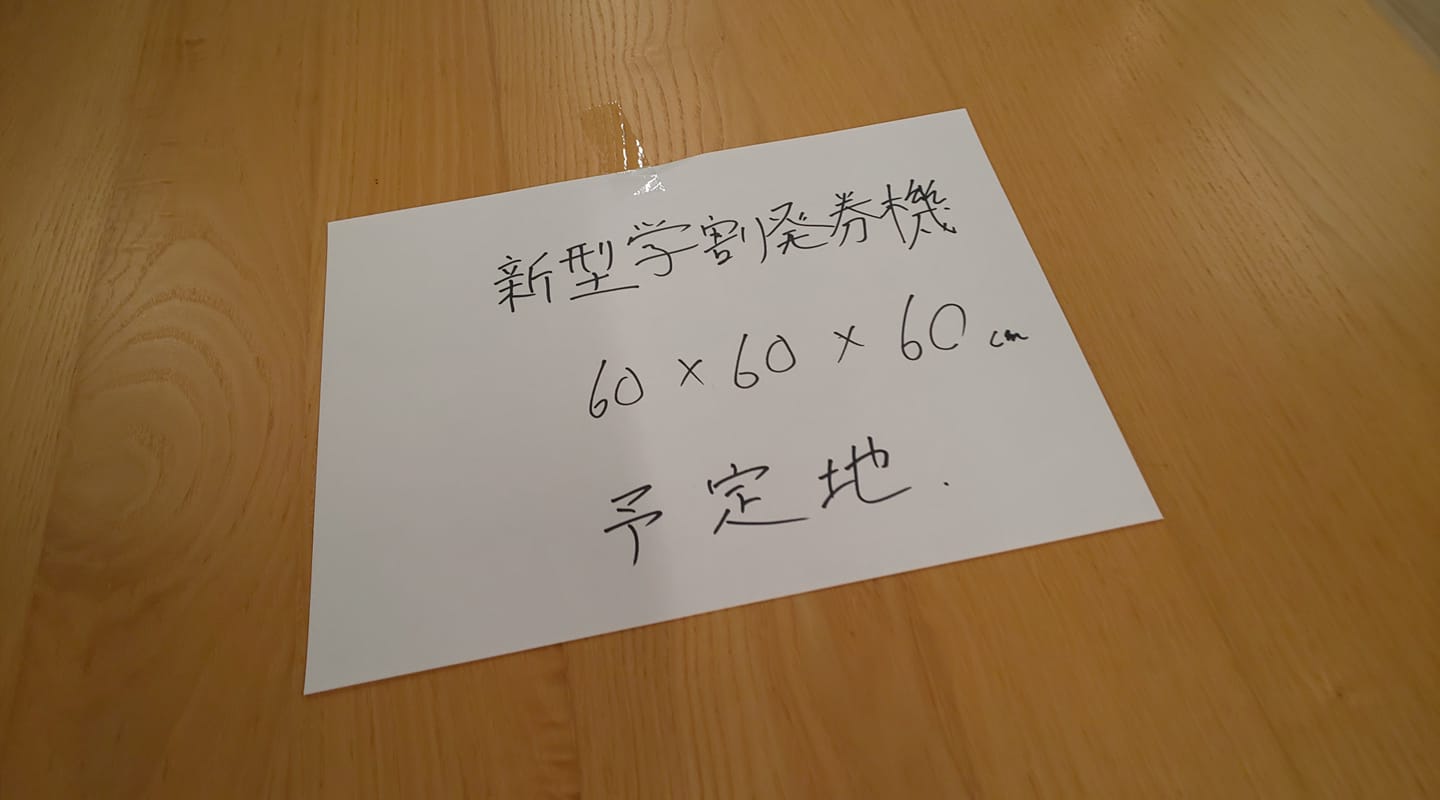 新型学割発券機
60 × 60 × 60 cm
予定地.